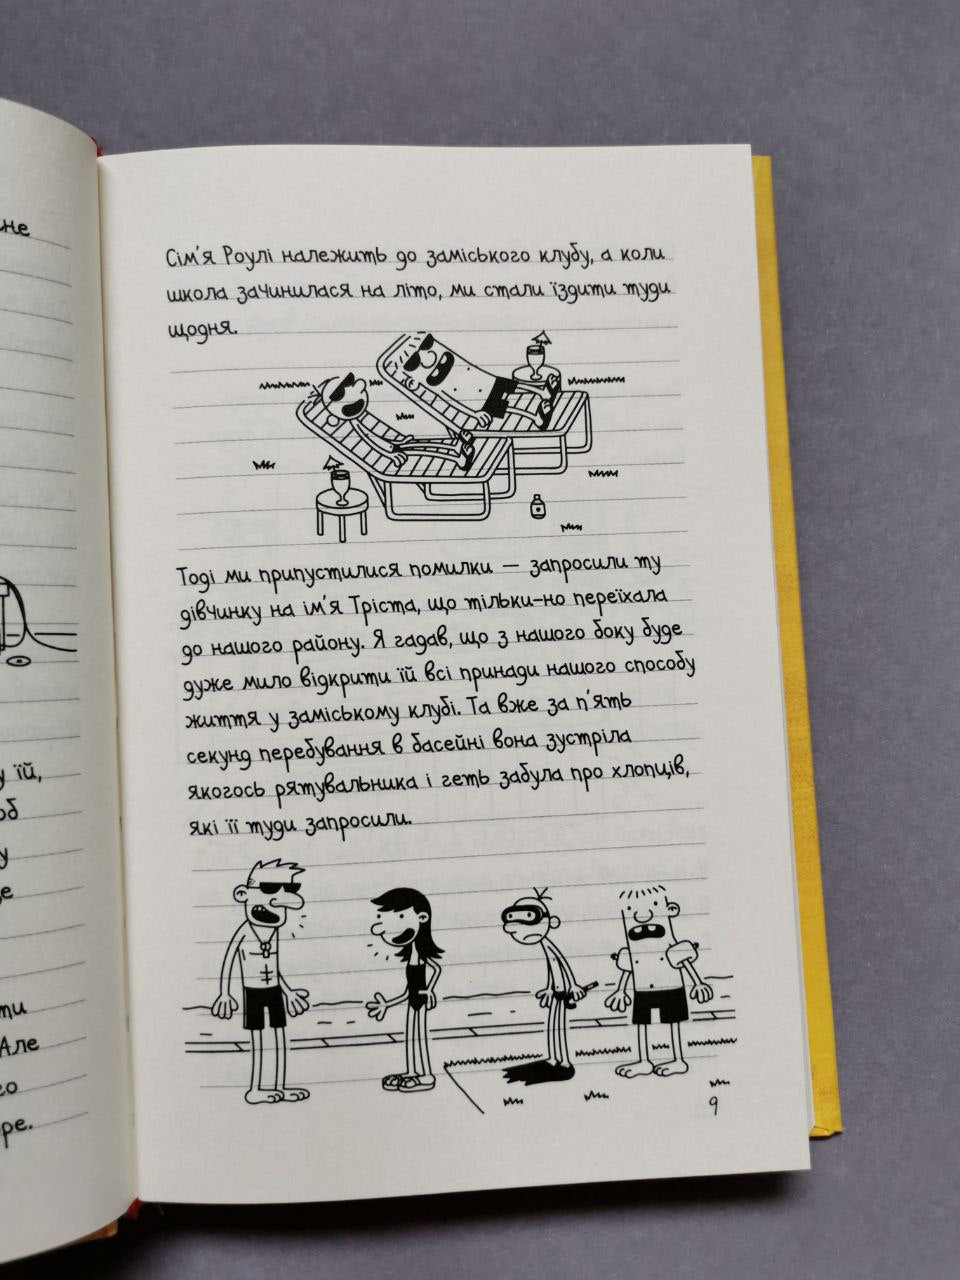 не
у їй,
об
у
ти
Але
го
ре.
Сім'я Роулі належить до заміського клубу, а коли
школа зачинилася на літо, ми стали їздити туди
щодня.
Тоді ми припустилися помилки — запросили ту
дівчинку на ім'я Тріста, що тільки-но переїхала
до нашого району. Я гадав, що з нашого боку буде
дуже мило відкрити їй всі принади нашого способу
життя у заміському клубі. Та вже за п'ять
секунд перебування в басейні вона зустріла
якогось рятувальника і геть забула про хлопців,
які її туди запросили.
9